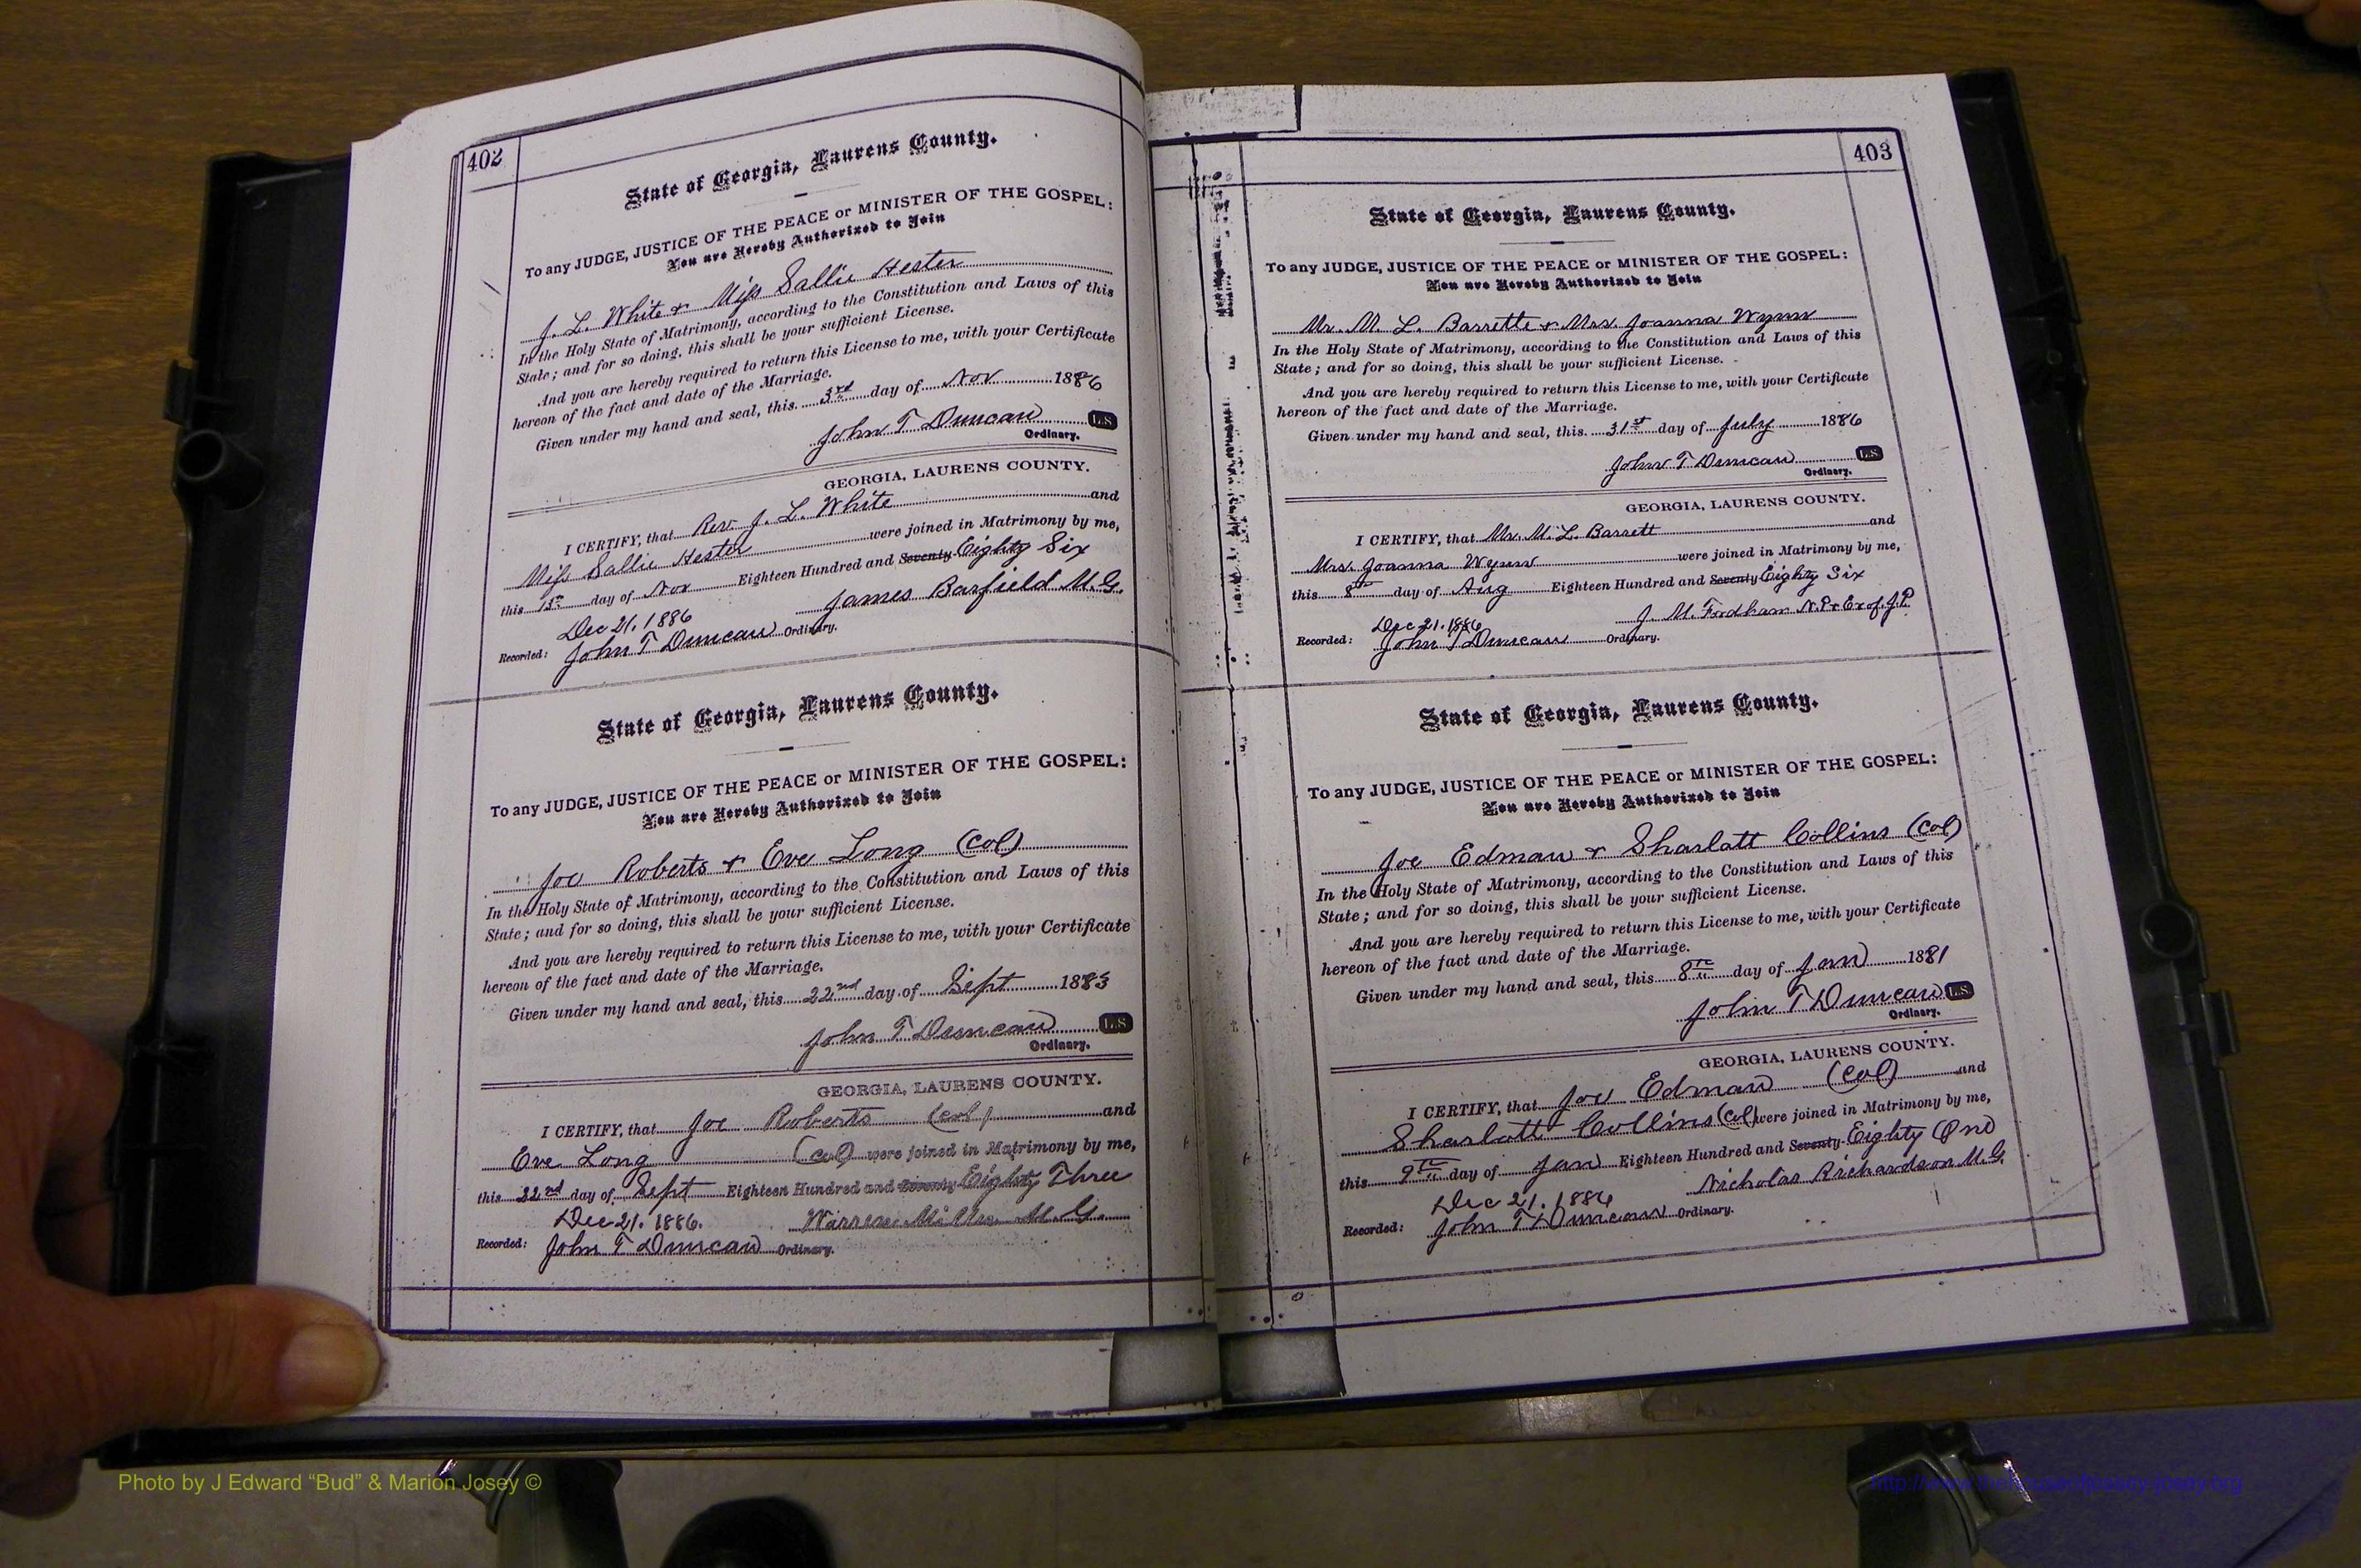 402
State of Georgia, Laurens County.
To any JUDGE, JUSTICE OF THE PEACE or MINISTER OF THE GOSPEL:
You are Hereby Authorized to Join
J. L. White & Miss Sallie Hester
In the Holy State of Matrimony, according to the Constitution and Laws of this
State; and for so doing, this shall be your sufficient License.
And you are hereby required to return this License to me, with your Certificate
hereon of the fact and date of the Marriage.
Given under my hand and seal, this 3rd day of Nov 1886
John T Duncan L.S.
Ordinary.
GEORGIA, LAURENS COUNTY.
I CERTIFY, that Rev. J. L. White and
Miss Sallie Hester were joined in Matrimony by me,
this day of Nov Eighteen Hundred and Seventy Eighty Six
James Barfield M.G.
Dec 21. 1886
Recorded: John T Duncan Ordinary.
State of Georgia, Laurens County.
To any JUDGE, JUSTICE OF THE PEACE or MINISTER OF THE GOSPEL:
You are Hereby Authorized to Join
Joe Roberts & Eve Long (Col)
In the Holy State of Matrimony, according to the Constitution and Laws of this
State; and for so doing, this shall be your sufficient License.
And you are hereby required to return this License to me, with your Certificate
hereon of the fact and date of the Marriage.
Given under my hand and seal, this 22nd day of Sept 1883
John T Duncan L.S.
Ordinary.
GEORGIA, LAURENS COUNTY.
I CERTIFY, that Joe Roberts (col) and
Eve Long (col) were joined in Matrimony by me,
this 22nd day of Sept Eighteen Hundred and Seventy Eighty Three
Dec 21. 1886. Warren M.G.
Recorded: John T Duncan Ordinary.
403
State of Georgia, Laurens County.
To any JUDGE, JUSTICE OF THE PEACE or MINISTER OF THE GOSPEL:
You are Hereby Authorized to Join
Mr. M. L. Barrette & Mrs. Joanna Wynn
In the Holy State of Matrimony, according to the Constitution and Laws of this
State; and for so doing, this shall be your sufficient License.
And you are hereby required to return this License to me, with your Certificate
hereon of the fact and date of the Marriage.
Given under my hand and seal, this 31st day of July 1886
John T Duncan L.S.
Ordinary.
GEORGIA, LAURENS COUNTY.
I CERTIFY, that Mr. M. L. Barrett and
Mrs. Joanna Wynn were joined in Matrimony by me,
this 8th day of Aug Eighteen Hundred and Seventy Eighty Six
J. M. Fordham N.P. & Ex of. J.P.
Dec 21. 1886
Recorded: John T Duncan Ordinary.
State of Georgia, Laurens County.
To any JUDGE, JUSTICE OF THE PEACE or MINISTER OF THE GOSPEL:
You are Hereby Authorized to Join
Joe Edman & Sharlatt Collins (Col)
In the Holy State of Matrimony, according to the Constitution and Laws of this
State; and for so doing, this shall be your sufficient License.
And you are hereby required to return this License to me, with your Certificate
hereon of the fact and date of the Marriage.
Given under my hand and seal, this 8th day of Jan 1881
John T Duncan L.S.
Ordinary.
GEORGIA, LAURENS COUNTY.
I CERTIFY, that Joe Edman (Col) and
Sharlatt Collins (Col) were joined in Matrimony by me,
this 9th day of Jan Eighteen Hundred and Seventy Eighty One
Nicholas Richardson M.G.
Dec 21. 1886
Recorded: John T Duncan Ordinary.
Photo by J Edward “Bud” & Marion Josey ©